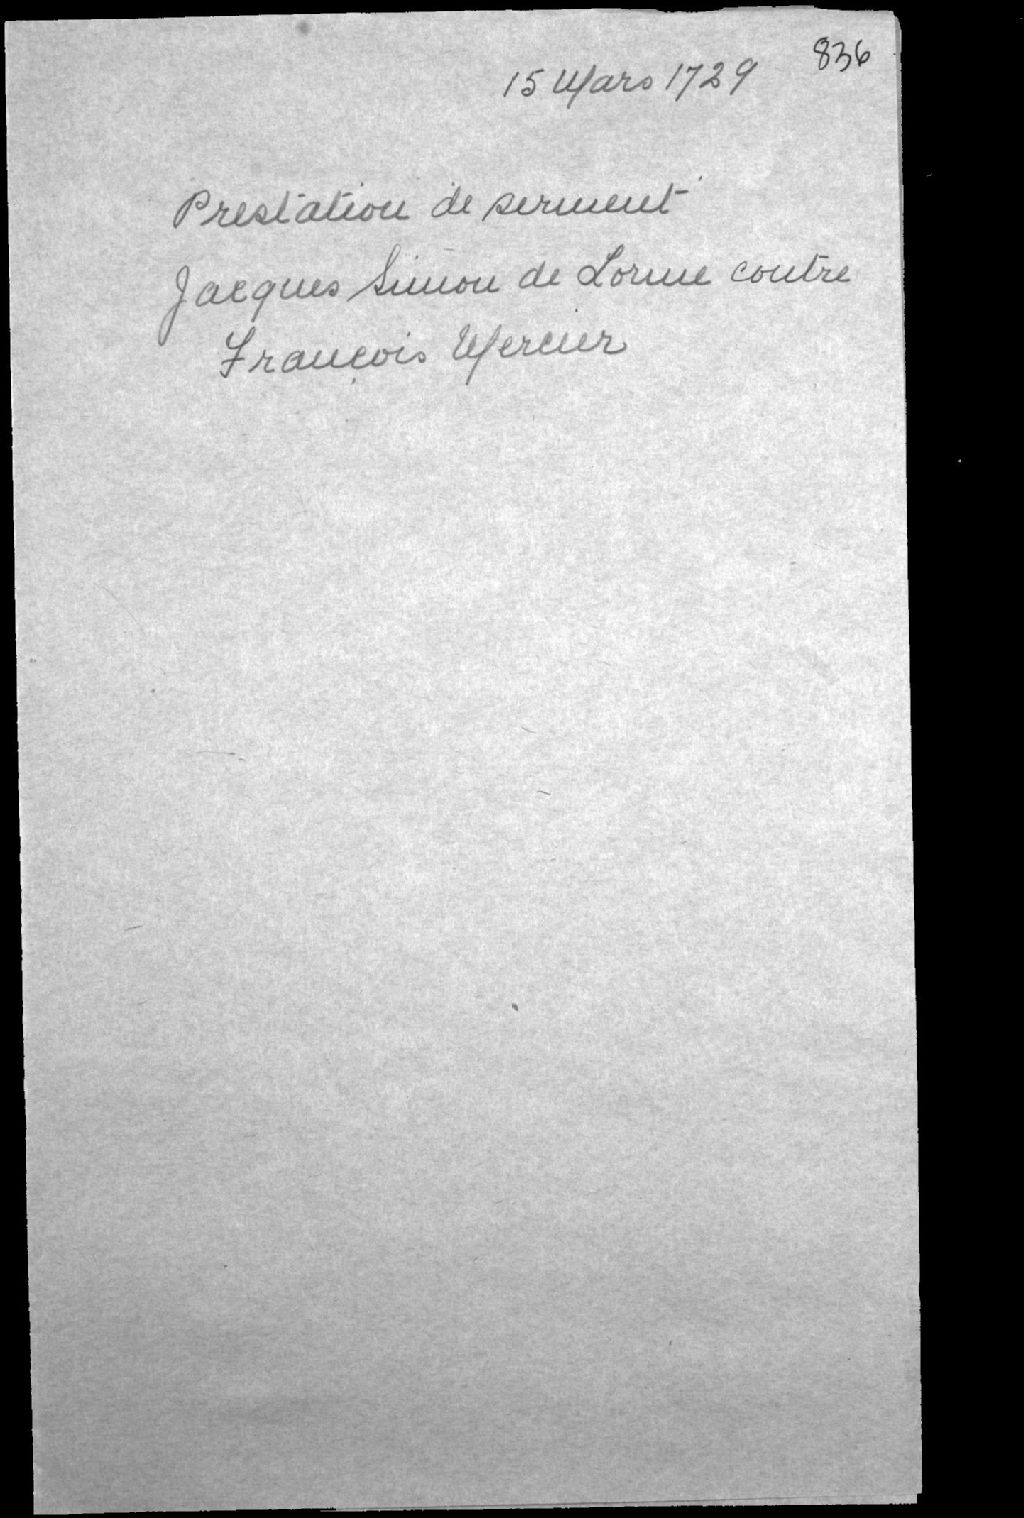 836
15 Mars 1729
Prestation de serment
Jacques Simon de Lorme contre
François Mercier